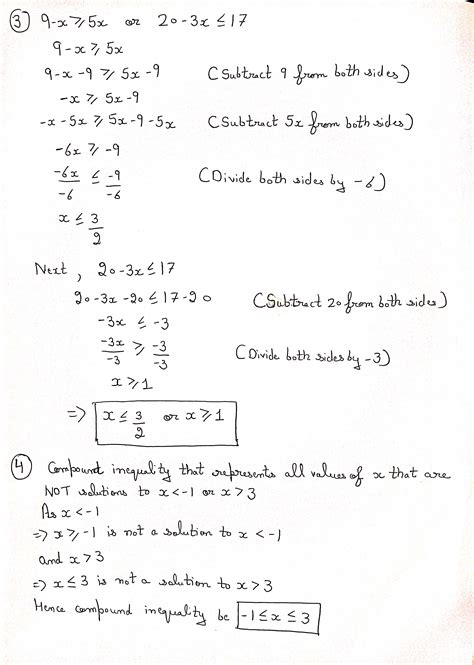 ③ 9-x ≥ 5x or 20-3x ≤ 17
9-x ≥ 5x
9-x-9 ≥ 5x-9 (Subtract 9 from both sides)
-x ≥ 5x-9
-x-5x ≥ 5x-9-5x (Subtract 5x from both sides)
-6x ≥ -9
-6x/-6 ≤ -9/-6 (Divide both sides by -6)
x ≤ 3/2
Next, 20-3x ≤ 17
20-3x-20 ≤ 17-20 (Subtract 20 from both sides)
-3x ≤ -3
-3x/-3 ≥ -3/-3 (Divide both sides by -3)
x ≥ 1
=> x ≤ 3/2 or x ≥ 1
④ Compound inequality that represents all values of x that are
NOT solutions to x < -1 or x > 3
As x < -1
=> x ≥ -1 is not a solution to x < -1
and x > 3
=> x ≤ 3 is not a solution to x > 3
Hence compound inequality be -1 ≤ x ≤ 3